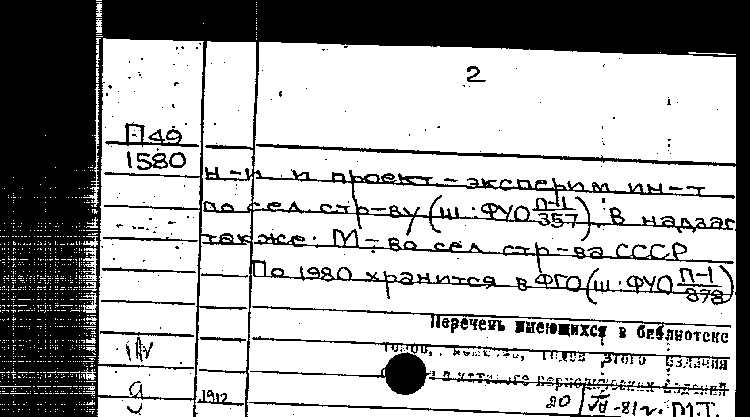 2
П49
1580
н-и и проект-эксперим ин-т
по сел стр-ву (ш: ФУО П-1/357). В надзаг
также: М-во сел стр-ва СССР
По 1980 хранится в ФГО (ш: ФУО П-1/878)
Перечень имеющихся в библиотеке
томов, годов этого издания
в каталоге периодических изданий
9
1912
20/VII-81г. М.Т.